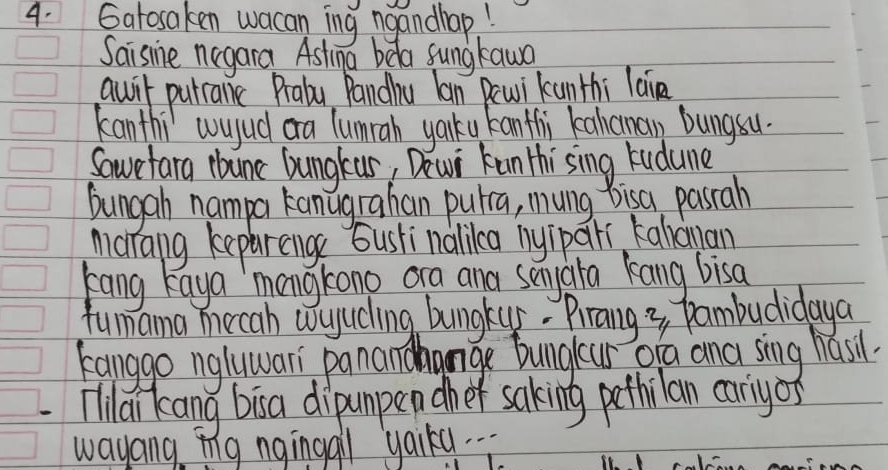 4. Gatosaken wacan ing ngandhap!
Saisine negara Astina beda sungkawa
awit putrane Prabu Pandhu lan Dewi kunthi lair
kanthi wujud ora lumrah yaiku kanthi kahanan bungsu.
Sawetara ibune bungkus, Dewi kunthi sing kudune
bungah nampa kanugrahan putra, mung bisa pasrah
marang keparenge Gusti nalika nyipati kahanan
kang kaya mangkono ora ana senjata kang bisa
tumama mecah wujuding bungkus. Pirang 2, pambudidaya
kanggo ngluwari panandhange bungkus ora ana sing hasil.
- Nilai kang bisa dipunpendhet saking pethilan cariyos
wayang ing nginggil yaiku...